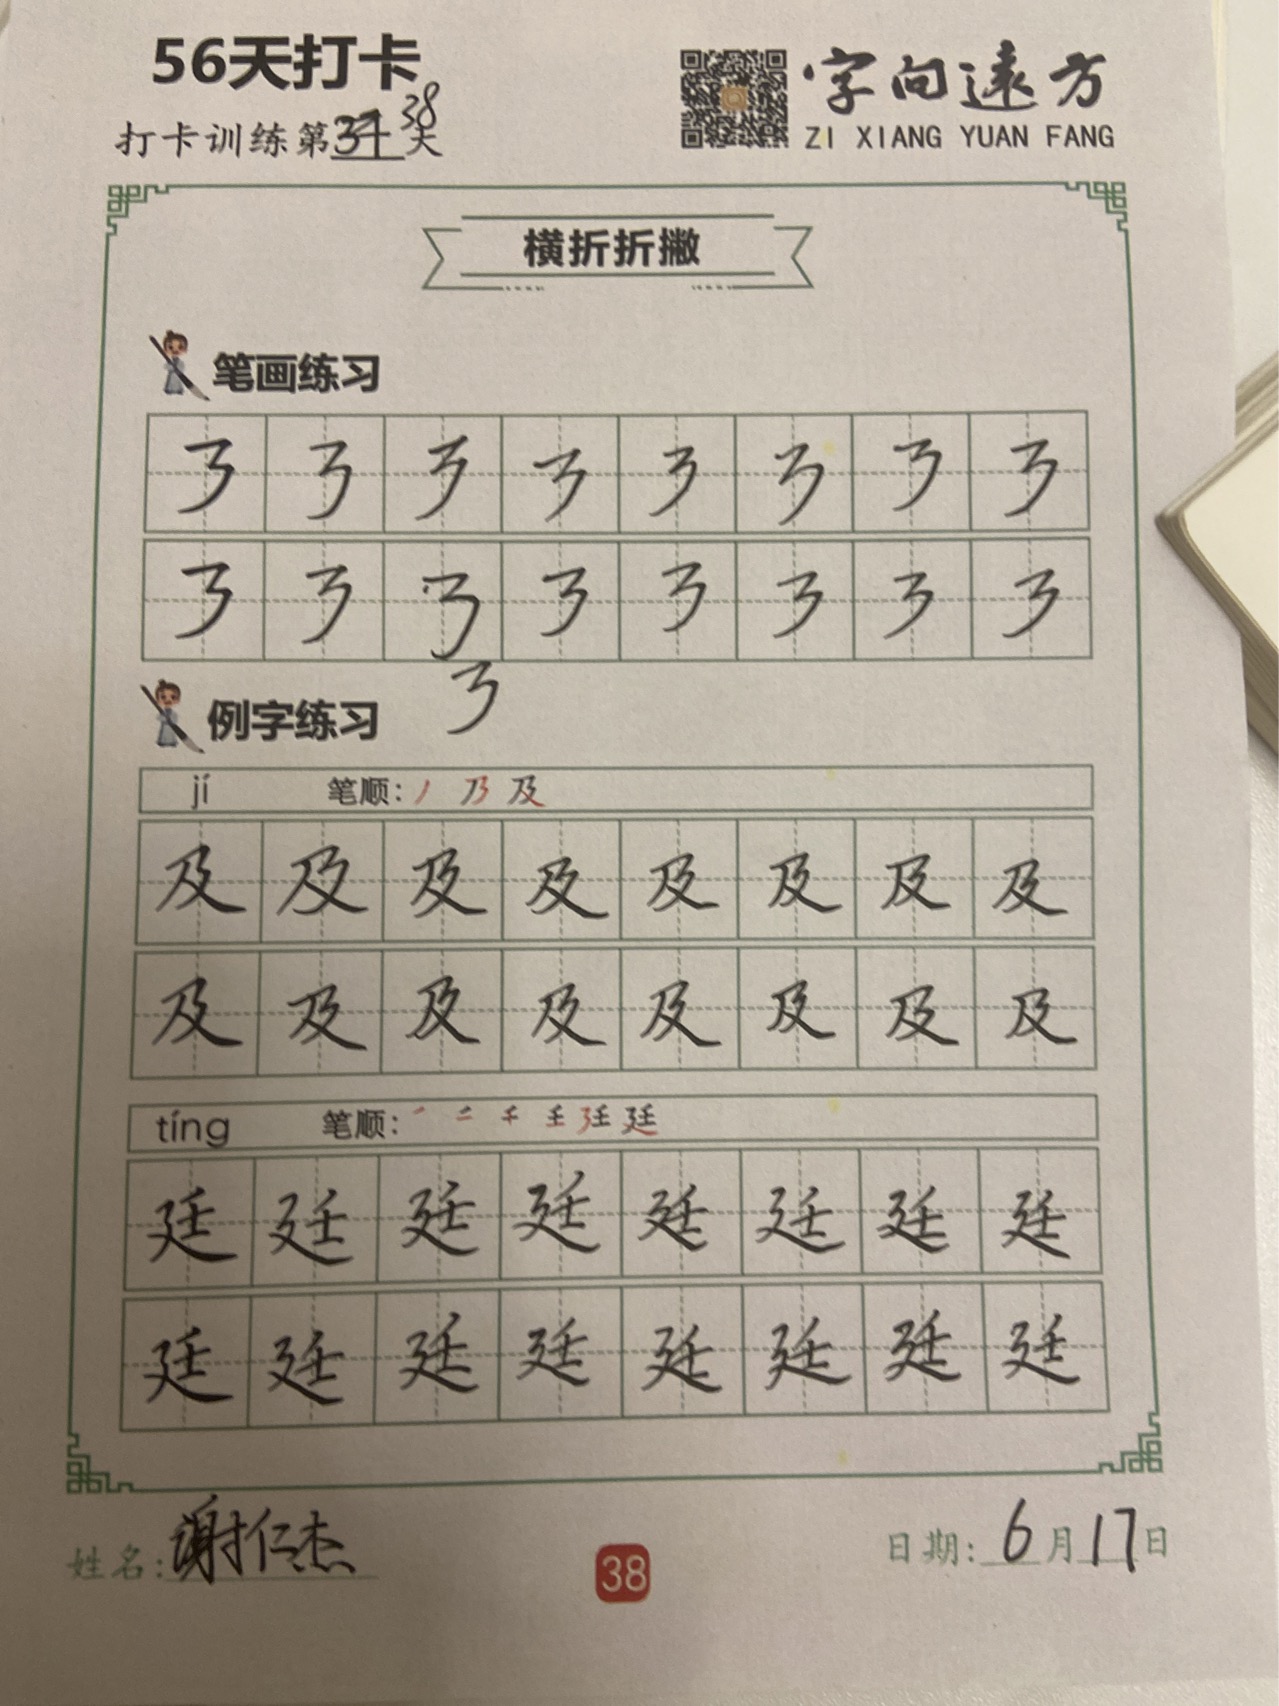 56天打卡
字向遠方
38
打卡训练第37天
ZI XIANG YUAN FANG
横折折撇
笔画练习
㇋ ㇋ ㇋ ㇋ ㇋ ㇋ ㇋ ㇋
㇋ ㇋ ㇋ ㇋ ㇋ ㇋ ㇋ ㇋
㇋
例字练习
jí 笔顺: 丿 乃 及
及 及 及 及 及 及 及 及
及 及 及 及 及 及 及 及
tíng 笔顺: ㇒ 二 千 壬 廷 廷
廷 廷 廷 廷 廷 廷 廷 廷
廷 廷 廷 廷 廷 廷 廷 廷
姓名: 谢仁杰
38
日期: 6月17日